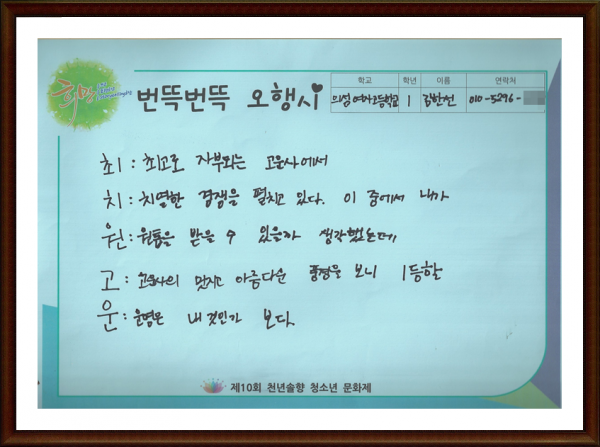 희망
번뜩번뜩 오행시
학교 학년 이름 연락처
의성여자고등학교 1 010-5296-
최 : 최고로 자부되는 고운사에서
치 : 치열한 경쟁을 펼치고 있다. 이 중에서 내가
원 : 원통을 받을 수 있을까 생각했는데,
고 : 고운사의 멋지고 아름다운 풍경을 보니 1등할
운 : 운명은 내 것인가 보다.
제10회 천년솔향 청소년 문화제